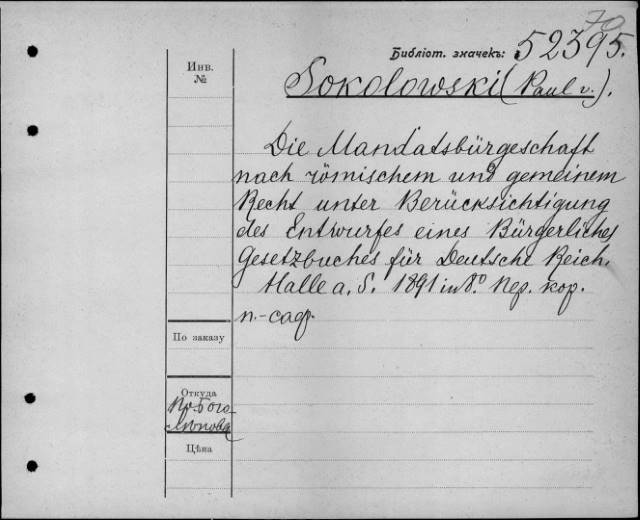 70
Библіот. значекъ: 52395.
Инв.
№
Sokolowski (Paul v.).
Die Mandatsbürgeschaft
nach römischem und gemeinem
Recht unter Berücksichtigung
des Entwurfes eines Bürgerliches
Gesetzbuches für Deutsche Reich.
Halle a. S. 1891 in 8.º Пер. кор.
п.-саф.
По заказу
Откуда
Цѣна